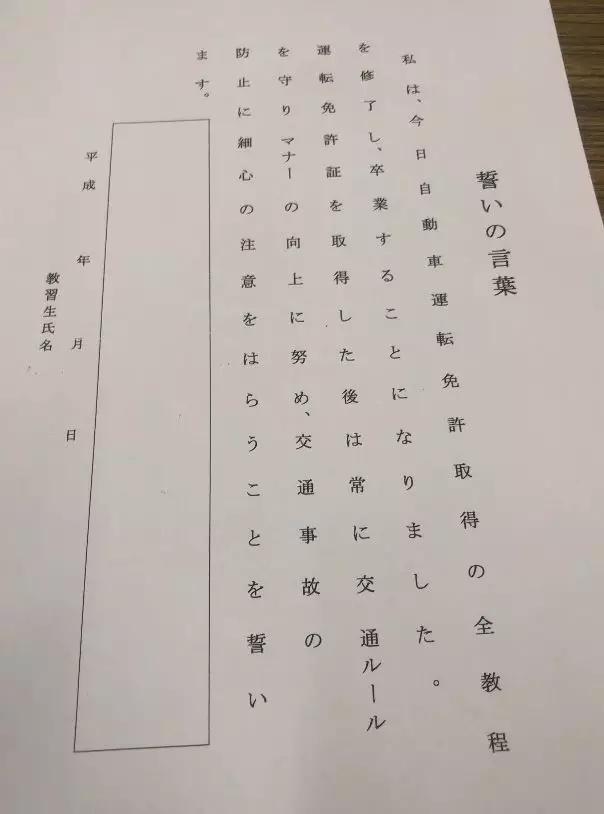 誓いの言葉
私は、今日自動車運転免許取得の全教程
を修了し、卒業することになりました。
運転免許証を取得した後は常に交通ルール
を守りマナーの向上に努め、交通事故の
防止に細心の注意をはらうことを誓い
ます。
平成 年 月 日
教習生氏名